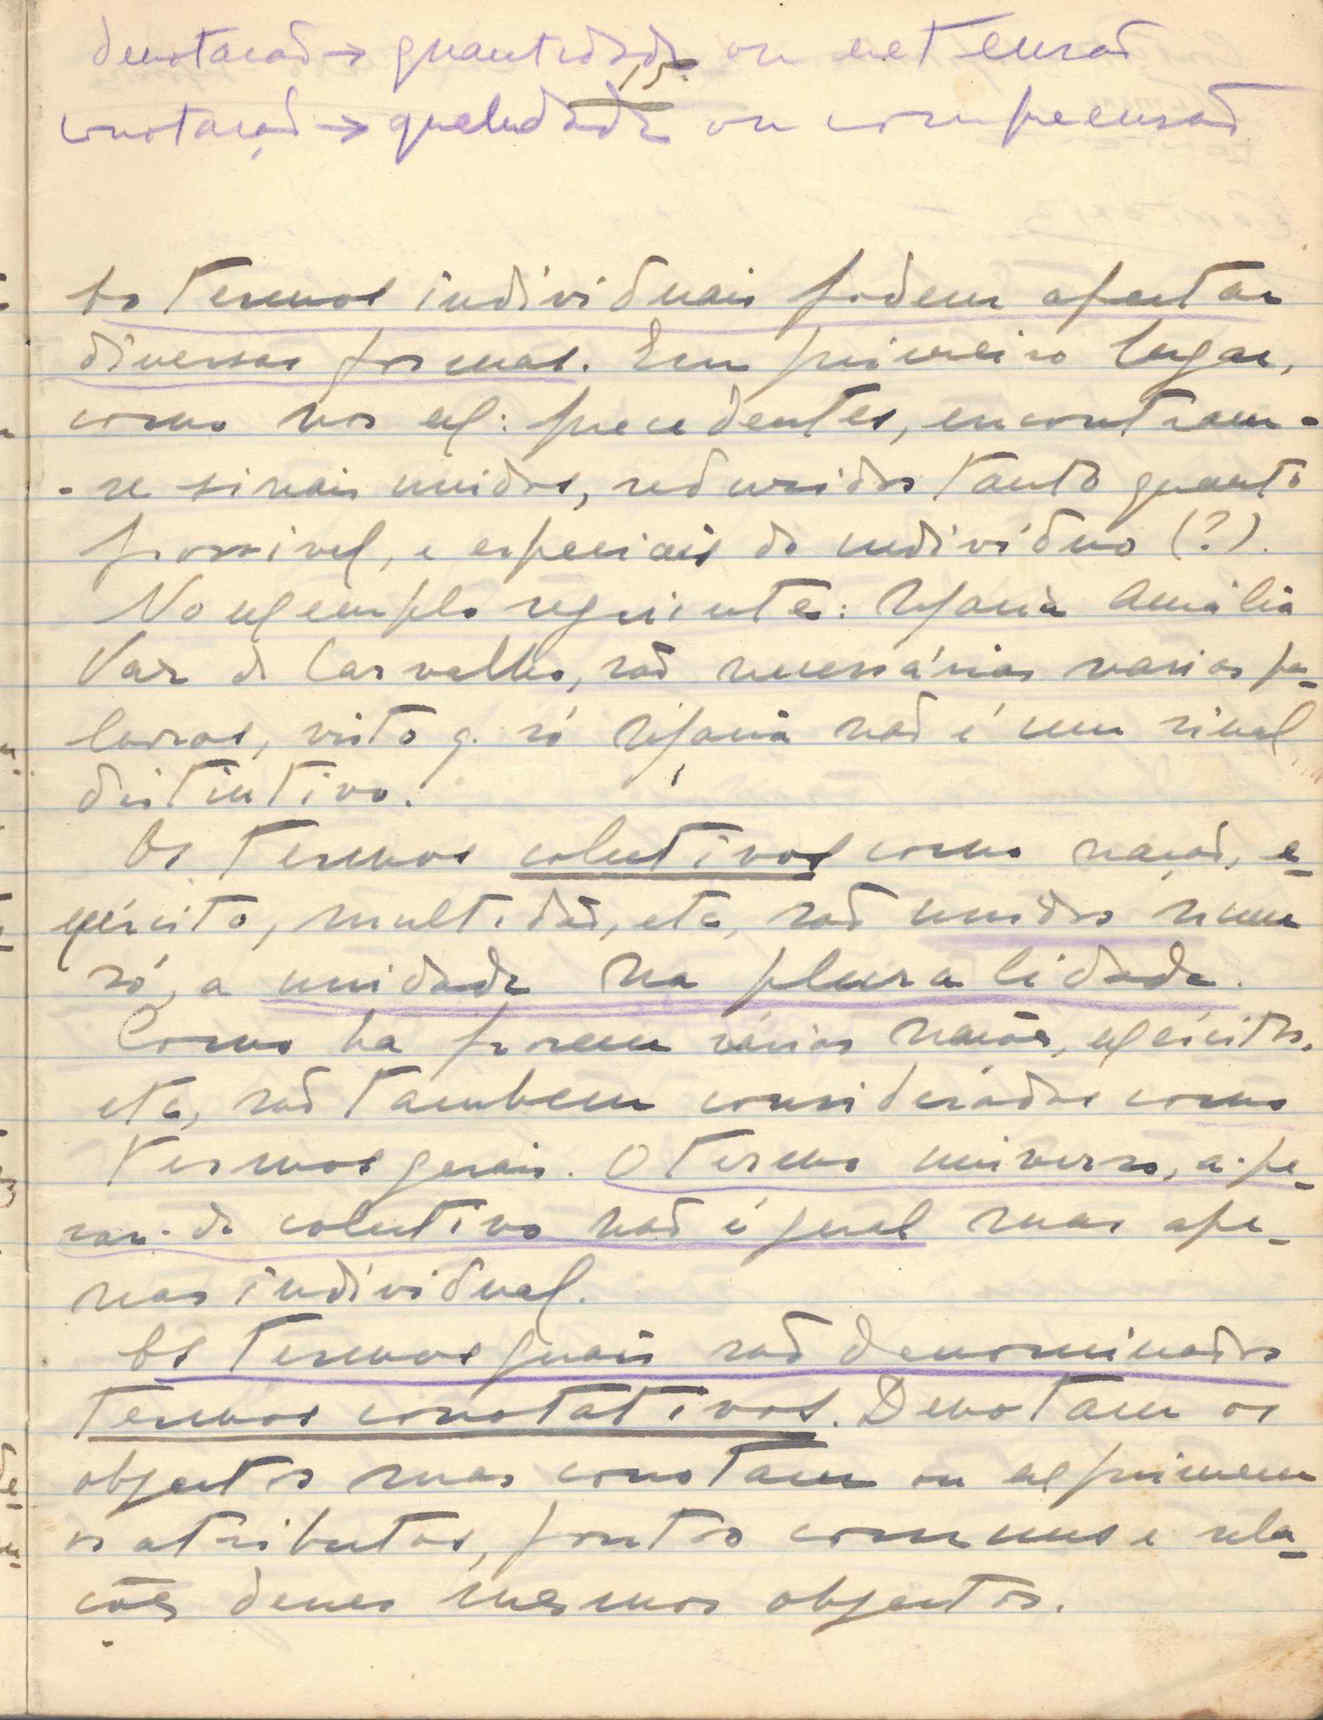 denotação → quantidade ou extensão
15.
conotação → qualidade ou compreensão
Os termos individuais podem afectar
diversas formas. Em primeiro lugar,
como nos ex: precedentes, encontram-
-se sinais unidos, reduzidos tanto quanto
possivel, e especiais do indivíduo (?).
No exemplo seguinte: Maria Amália
Vaz de Carvalho, são necessárias varias pa-
lavras, visto q. só Maria não é um sinal
distintivo.
Os termos colectivos como nação, e-
xército, multidão, etc, são unidos num
só, a unidade na pluralidade.
Como ha porem várias nações, exércitos,
etc, são tambem considerados como
termos gerais. O termo universo, a-pe-
sar-de colectivo não é geral mas ape-
nas individual.
Os termos gerais são denominados
termos conotativos. Denotam os
objectos mas conotam ou exprimem
os atributos, pontos comuns e rela-
ções desses mesmos objectos.